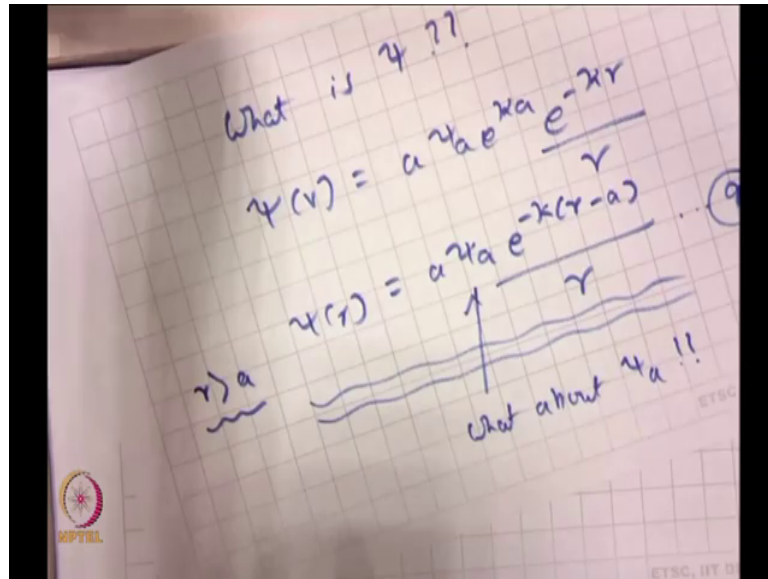 What is ψ ??
ψ(r) = a ψa e^κa e^-κr / r
ψ(r) = a ψa e^-κ(r-a) / r ... (9
r>a
What about ψa !!
ETSC
NPTEL
ETSC, IIT D